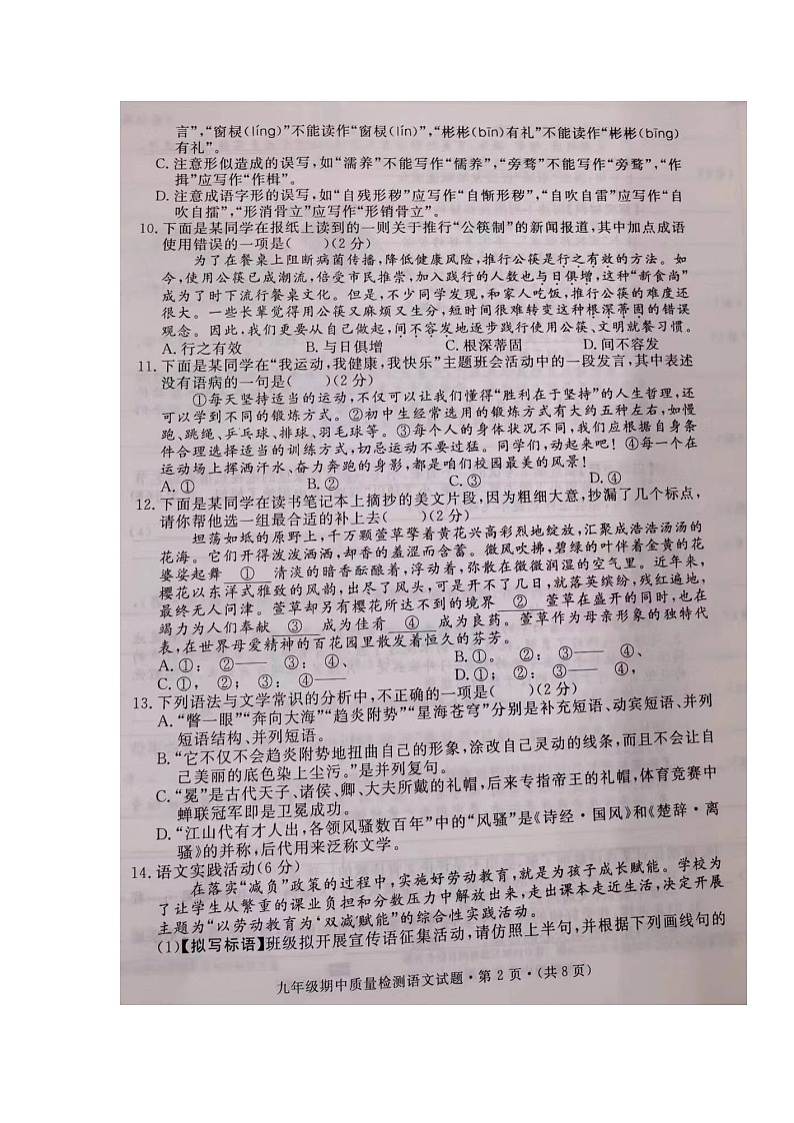 言”,“窗棂(líng)”不能读作“窗棂(lín)”,“彬彬(bīn)有礼”不能读作“彬彬(bīng)
有礼”。
C. 注意形似造成的误写,如“濡养”不能写作“儒养”,“旁骛”不能写作“旁鹜”,“作
揖”应写作“作楫”。
D. 注意成语字形的误写,如“自残形秽”应写作“自惭形秽”,“自吹自雷”应写作“自
吹自擂”,“形消骨立”应写作“形销骨立”。
10. 下面是某同学在报纸上读到的一则关于推行“公筷制”的新闻报道,其中加点成语
使用错误的一项是(  )(2 分)
为了在餐桌上阻断病菌传播,降低健康风险,推行公筷是行之有效的方法。如
今,使用公筷已成潮流,倍受市民推崇,加入践行的人数也与日俱增,这种“新食尚”
成为了时下流行餐桌文化。但是,不少同学发现,和家人吃饭,推行公筷的难度还
很大。一些长辈觉得用公筷又麻烦又生分,短时间很难转变这种根深蒂固的错误
观念。因此,我们更要从自己做起,间不容发地逐步践行使用公筷、文明就餐习惯。
A. 行之有效 B. 与日俱增 C. 根深蒂固 D. 间不容发
11. 下面是某同学在“我运动,我健康,我快乐”主题班会活动中的一段发言,其中表述
没有语病的一句是(  )(2 分)
①每天坚持适当的运动,不仅可以让我们懂得“胜利在于坚持”的人生哲理,还
可以学到不同的锻炼方式。②初中生经常选用的锻炼方式有大约五种左右,如慢
跑、跳绳、乒乓球、排球、羽毛球等。③每个人的身体状况不同,我们应根据自身条
件合理选择适当的训练方式,切忌运动不要过猛。同学们,动起来吧！④每一个在
运动场上挥洒汗水、奋力奔跑的身影,都是咱们校园最美的风景！
A. ① B. ② C. ③ D. ④
12. 下面是某同学在读书笔记本上摘抄的美文片段,因为粗细大意,抄漏了几个标点,
请你帮他选一组最合适的补上去(  )(2 分)
坦荡如坻的原野上,千万颗萱草擎着黄花兴高彩烈地绽放,汇聚成浩浩汤汤的
花海。它们开得泼泼洒洒,却香的羞涩而含蓄。微风吹拂,碧绿的叶伴着金黄的花
婆娑起舞 ① 清淡的暗香酝酿着,浮动着,弥散在微微润湿的空气里。近年来,
樱花以东洋式雅致的风韵,出尽了风头,可是开不了几日,就落英缤纷,残红遍地,
最终无人问津。萱草却另有樱花所达不到的境界 ② 萱草在盛开的同时,也在
竭力为人们奉献 ③ 成为佳肴 ④ 成为良药。萱草作为母亲形象的独特代
表,在世界母爱精神的百花园里散发着恒久的芬芳。
A. ①; ②—— ③: ④、 B. ①。 ②: ③—— ④、
C. ①, ②; ③: ④—— D. ①; ②: ③—— ④,
13. 下列语法与文学常识的分析中,不正确的一项是(  )(2 分)
A. “瞥一眼”“奔向大海”“趋炎附势”“星海苍穹”分别是补充短语、动宾短语、并列
短语结构、并列短语。
B. “它不仅不会趋炎附势地扭曲自己的形象,涂改自己灵动的线条,而且不会让自
己美丽的底色染上尘污。”是并列复句。
C. “冕”是古代天子、诸侯、卿、大夫所戴的礼帽,后来专指帝王的礼帽,体育竞赛中
蝉联冠军即是卫冕成功。
D. “江山代有才人出,各领风骚数百年”中的“风骚”是《诗经·国风》和《楚辞·离
骚》的并称,后代用来泛称文学。
14. 语文实践活动(6 分)
在落实“减负”政策的过程中,实施好劳动教育,就是为孩子成长赋能。学校为
了让学生从繁重的课业负担和分数压力中解放出来,走出课本走近生活,决定开展
主题为“以劳动教育为‘双减’赋能”的综合性实践活动。
(1)【拟写标语】班级拟开展宣传语征集活动,请仿照上半句,并根据下列画线句的
九年级期中质量检测语文试题·第 2 页·(共 8 页)